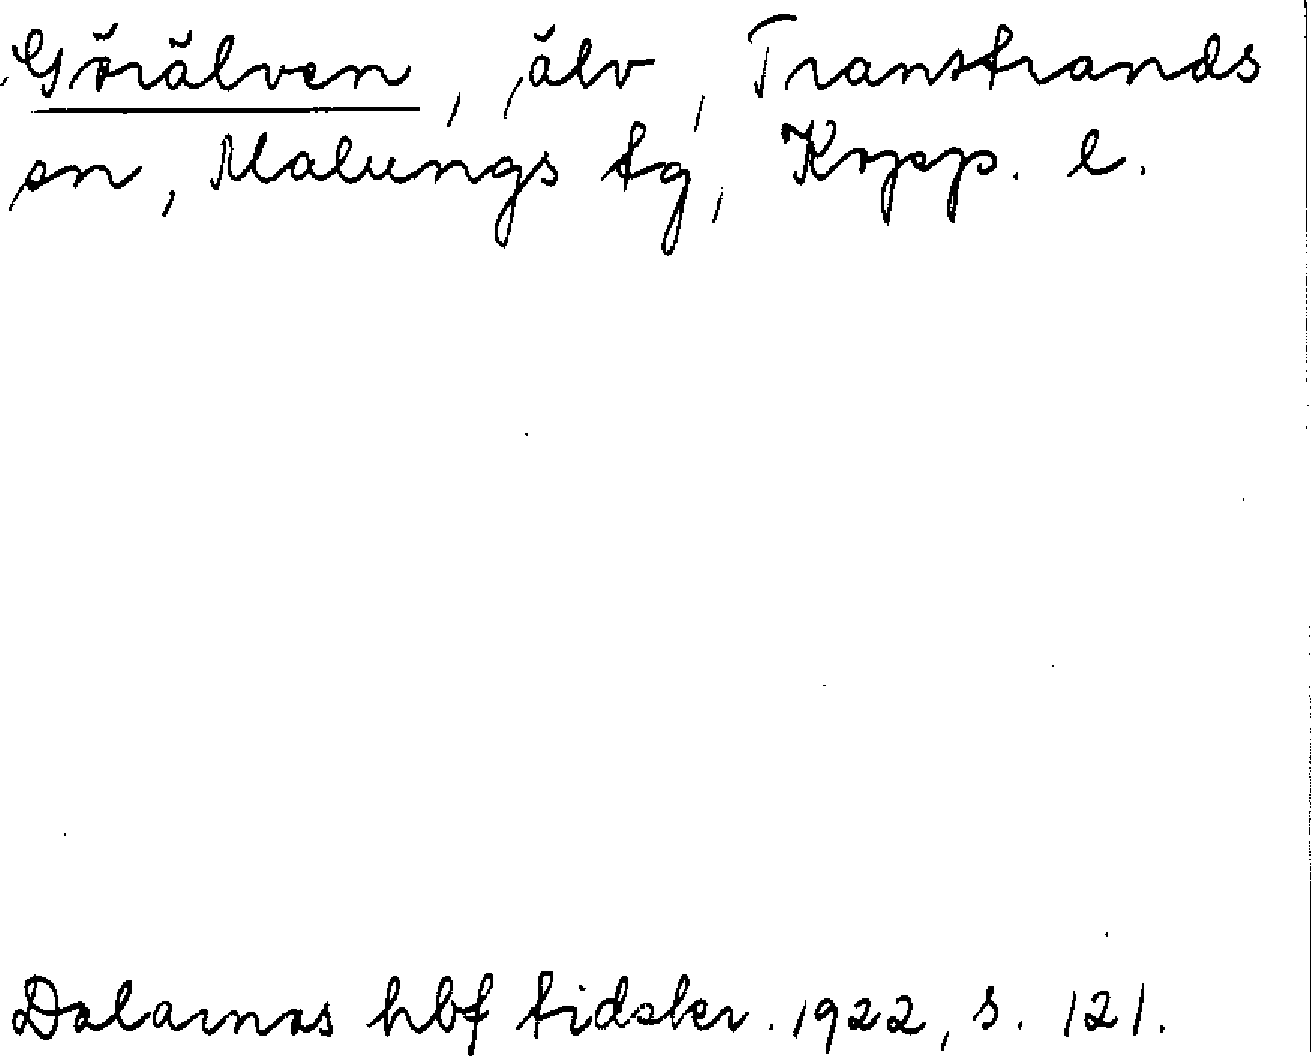 Görälven, älv, Transtrands
sn, Malungs tg, Kopp. l.
Dalarnas hbf tidskr. 1922, s. 121.